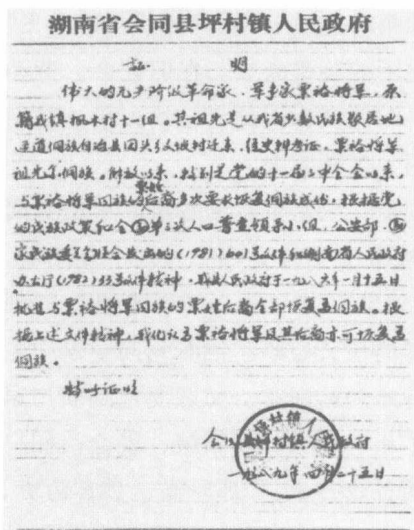 湖南省会同县坪村镇人民政府
证　明
伟大的无产阶级革命家、军事家粟裕将军，原
籍我镇枫木村十一组。其祖先是从我省少数民族聚居地
通道侗族自治县因头乡坎城村迁来，经史料考证，粟裕将军
祖先系侗族。解放以来，特别是党的十一届三中全会以来，
粟姓
与粟裕将军同族的后裔多次要求恢复侗族成份，根据党
的民族政策和全国第三次人口普查领导小组、公安部、国
家民族委员会联合发出的（1981）601号文件和湖南省人民政府
办公厅（1982）33号文件精神，我县人民政府于一九八六年一月十五日
批准与粟裕将军同族的粟姓后裔全部恢复为侗族。根
据上述文件精神，我们认为粟裕将军及其后裔亦可恢复为
侗族。
特此证明
会同县坪村镇人民政府
一九八九年四月二十五日